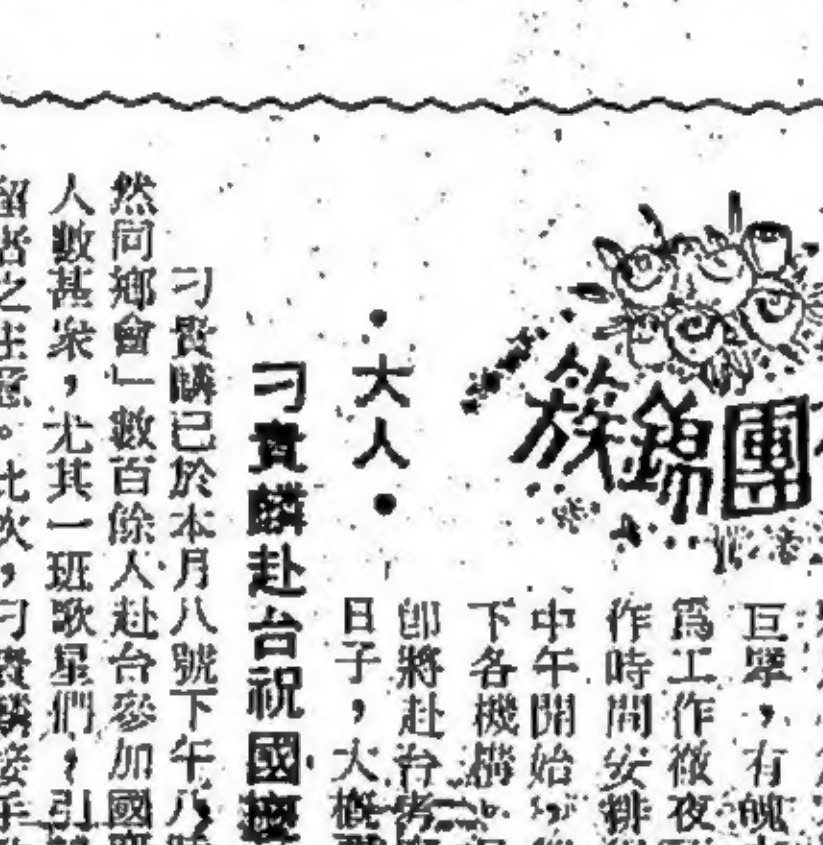 團錦族
巨擘，有魄
爲工作徹夜
作時間安排
中午開始
下各機構
即將赴台考
日子，大概
•大人•
刁寶麟赴台祝國慶
刁寶麟已於本月八號下午八時
然同鄉會」數百餘人赴台參加國慶
人數甚衆，尤其一班歌星們，引
留者之注意。此次，刁寶麟接手